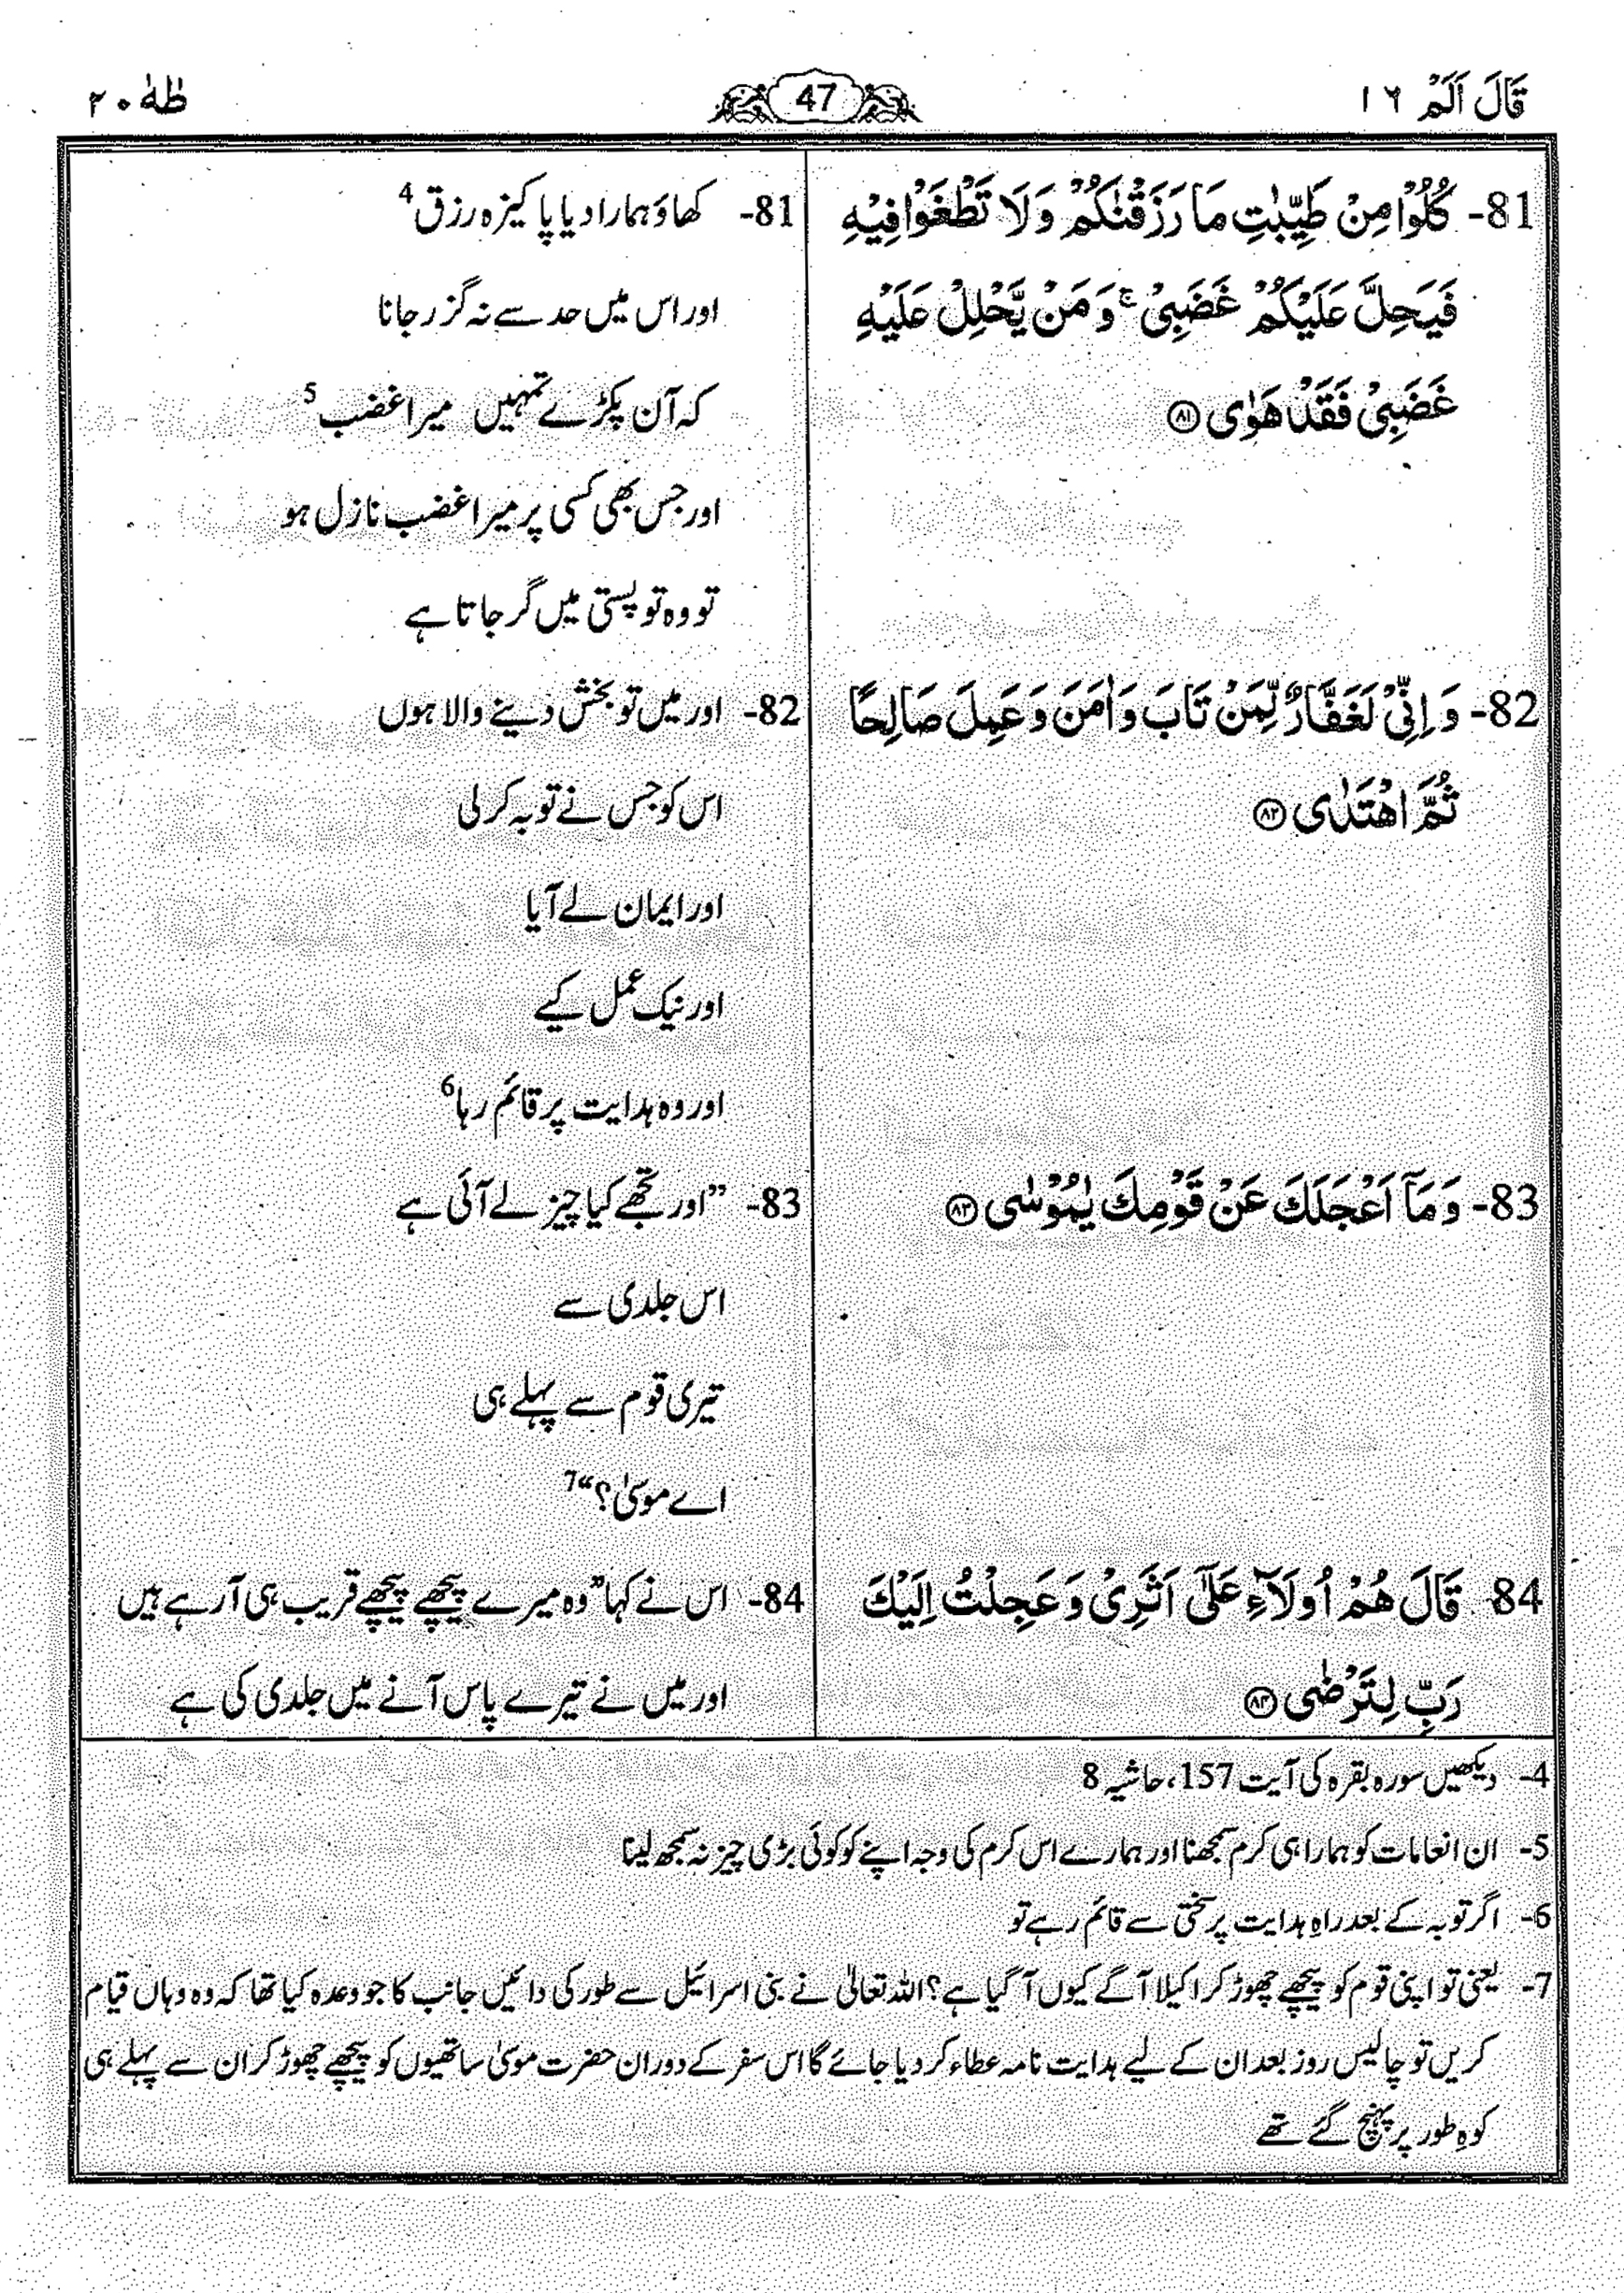 قَالَ اَلَمْ ١٦
47
طٰهٰ ٢٠
81- كُلُوْا مِنْ طَيِّبٰتِ مَا رَزَقْنٰكُمْ وَلَا تَطْغَوْا فِيْهِ
فَيَحِلَّ عَلَيْكُمْ غَضَبِيْ ۚ وَمَنْ يَّحْلِلْ عَلَيْهِ
غَضَبِيْ فَقَدْ هَوٰى ﴿٨١﴾
82- وَ اِنِّيْ لَغَفَّارٌ لِّمَنْ تَابَ وَاٰمَنَ وَ عَمِلَ صَالِحًا
ثُمَّ اهْتَدٰى ﴿٨٢﴾
83- وَ مَاۤ اَعْجَلَكَ عَنْ قَوْمِكَ يٰمُوْسٰى ﴿٨٣﴾
84 قَالَ هُمْ اُولَآءِ عَلٰۤى اَثَرِيْ وَ عَجِلْتُ اِلَيْكَ
رَبِّ لِتَرْضٰى ﴿٨٤﴾
81- کھاؤ ہمارا دیا پاکیزہ رزق 4
اور اس میں حد سے نہ گزر جانا
کہ آن پکڑے تمہیں میرا غضب 5
اور جس بھی کسی پر میرا غضب نازل ہو
تو وہ تو پستی میں گر جاتا ہے
82- اور میں تو بخش دینے والا ہوں
اس کو جس نے توبہ کر لی
اور ایمان لے آیا
اور نیک عمل کیے
اور وہ ہدایت پر قائم رہا 6
83- ”اور تجھے کیا چیز لے آئی ہے
اس جلدی سے
تیری قوم سے پہلے ہی
اے موسیٰ؟“ 7
84- اس نے کہا ”وہ میرے پیچھے پیچھے قریب ہی آ رہے ہیں
اور میں نے تیرے پاس آنے میں جلدی کی ہے
4- دیکھیں سورہ بقرہ کی آیت 157، حاشیہ 8
5- ان انعامات کو ہمارا ہی کرم سمجھنا اور ہمارے اس کرم کی وجہ اپنے کو کوئی بڑی چیز نہ سمجھ لینا
6- اگر توبہ کے بعد راہِ ہدایت پر سختی سے قائم رہے تو
7- یعنی تو اپنی قوم کو پیچھے چھوڑ کر اکیلا آگے کیوں آ گیا ہے؟ اللہ تعالیٰ نے بنی اسرائیل سے طور کی دائیں جانب کا جو وعدہ کیا تھا کہ وہ وہاں قیام
کریں تو چالیس روز بعد ان کے لیے ہدایت نامہ عطاء کر دیا جائے گا اس سفر کے دوران حضرت موسیٰ ساتھیوں کو پیچھے چھوڑ کر ان سے پہلے ہی
کوہِ طور پر پہنچ گئے تھے